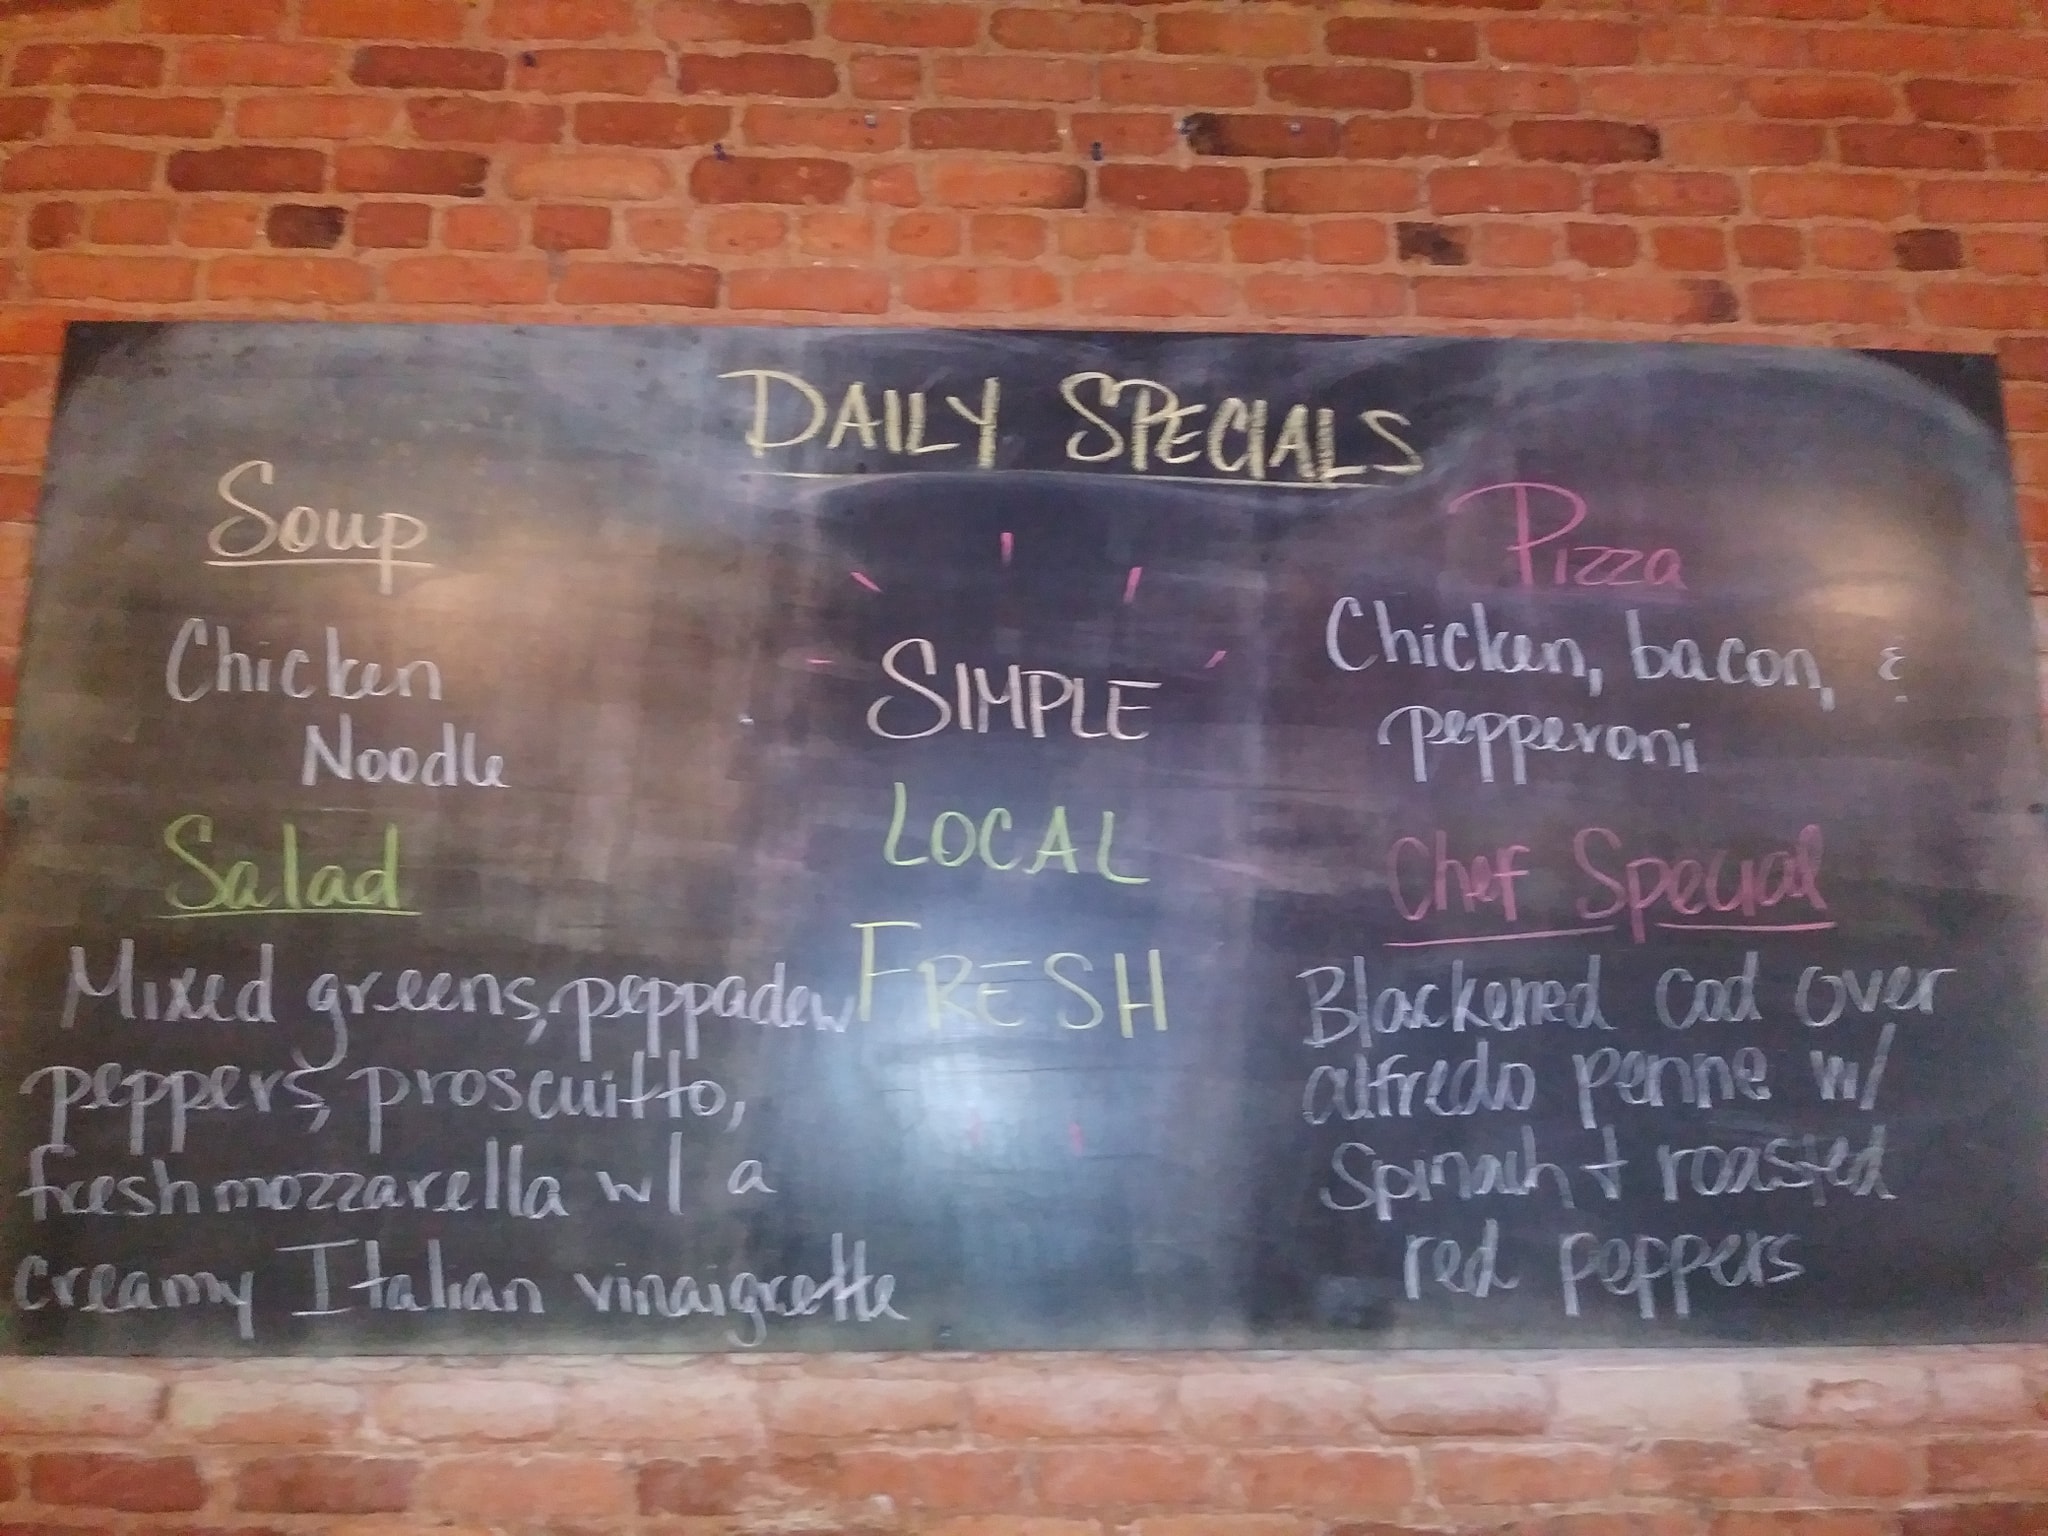 DAILY SPECIALS
Soup
Chicken
Noodle
Salad
Mixed greens, peppadew
peppers, proscuitto,
fresh mozzarella w/ a
creamy Italian vinaigrette
SIMPLE
LOCAL
FRESH
Pizza
Chicken, bacon, &
pepperoni
Chef Special
Blackened cod over
alfredo penne w/
Spinach + roasted
red peppers